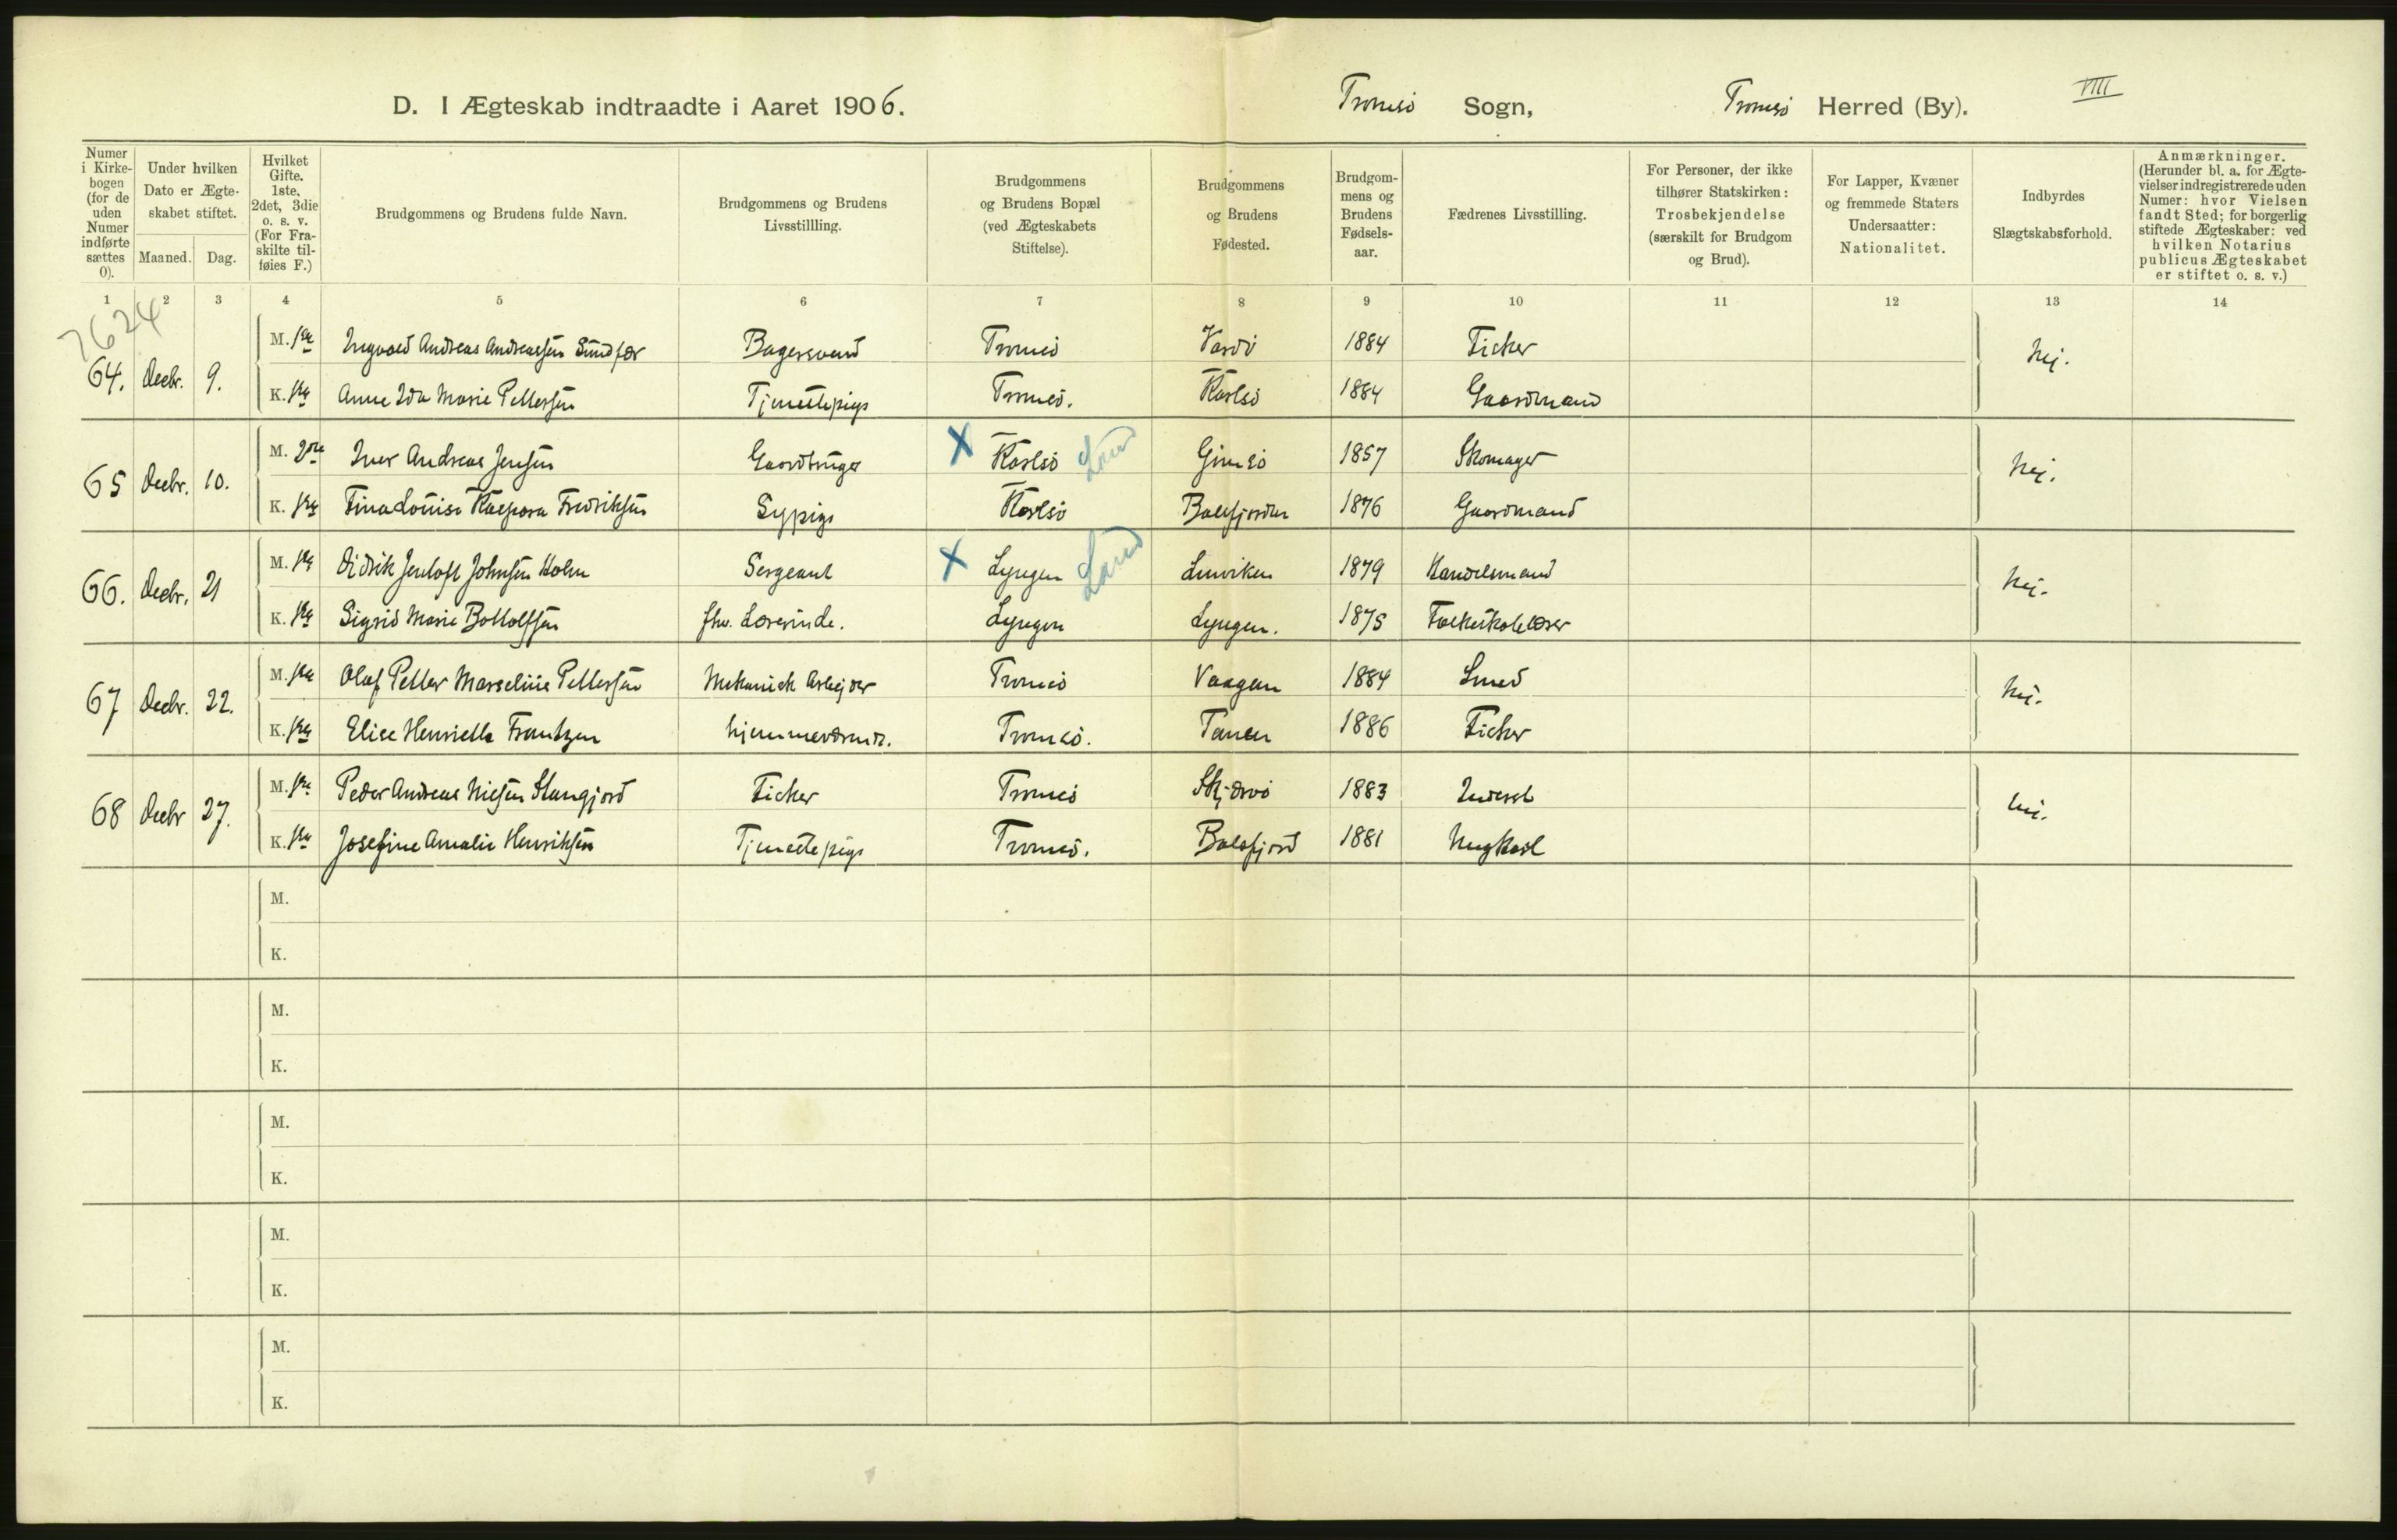 D. I Ægteskab indtraadte i Aaret 1906.
Tromsö Sogn,
Tromsö Herred (By).
VIII
Numer i Kirkebogen (for de uden Numer indførte sættes 0).
Under hvilken Dato er Ægteskabet stiftet.
Maaned. Dag.
Hvilket Gifte. 1ste, 2det, 3die o. s. v. (For Fraskilte tilføies F.)
Brudgommens og Brudens fulde Navn.
Brudgommens og Brudens Livsstillling.
Brudgommens og Brudens Bopæl (ved Ægteskabets Stiftelse).
Brudgommens og Brudens Fødested.
Brudgommens og Brudens Fødselsaar.
Fædrenes Livsstilling.
For Personer, der ikke tilhører Statskirken: Trosbekjendelse (særskilt for Brudgom og Brud).
For Lapper, Kvæner og fremmede Staters Undersaatter: Nationalitet.
Indbyrdes Slægtskabsforhold.
Anmærkninger. (Herunder bl. a. for Ægtevielser indregistrerede uden Numer: hvor Vielsen fandt Sted; for borgerlig stiftede Ægteskaber: ved hvilken Notarius publicus Ægteskabet er stiftet o. s. v.)
1 2 3 4 5 6 7 8 9 10 11 12 13 14
7624
64. Decbr. 9. M. 1ste Ingvald Andreas Andreassen Sundfær Bagersvend Tromsö Vardö 1884 Fisker Nei.
K. 1ste Anne Ida Marie Pettersen Tjenestepige Tromsö. Karlsö 1884 Gaardmand
65 Decbr. 10. M. 2den Iver Andreas Jensen Gaardbruger X Karlsö Land Gimsö 1857 Skomager Nei.
K. 1ste Tina Louise Kaspara Fredriksen Sypige Karlsö Balsfjorden 1876 Gaardmand
66. Decbr. 21 M. 1ste Didrik Jentoft Johnsen Holm Sergeant X Lyngen Land Lenviken 1879 Handelsmand Nei.
K. 1ste Sigrid Marie Bottolfsen fhv. Lærerinde. Lyngen Lyngen. 1875 Folkeskolelærer
67 Decbr. 22. M. 1ste Olaf Petter Marselius Pettersen Mekanisk Arbejder Tromsö Vaagan 1884 Smed Nei.
K. 1ste Elise Henriette Frantzen hjemmeværende. Tromsö. Tanen 1886 Fisker
68 Decbr 27. M. 1ste Peder Andreas Nilsen Stangjord Fisker Tromsö Skjærvö 1883 Inderst Nei.
K. 1ste Josefine Amalie Henriksen Tjenestepige Tromsö. Balsfjord 1881 Ungkarl
M.
K.
M.
K.
M.
K.
M.
K.
M.
K.